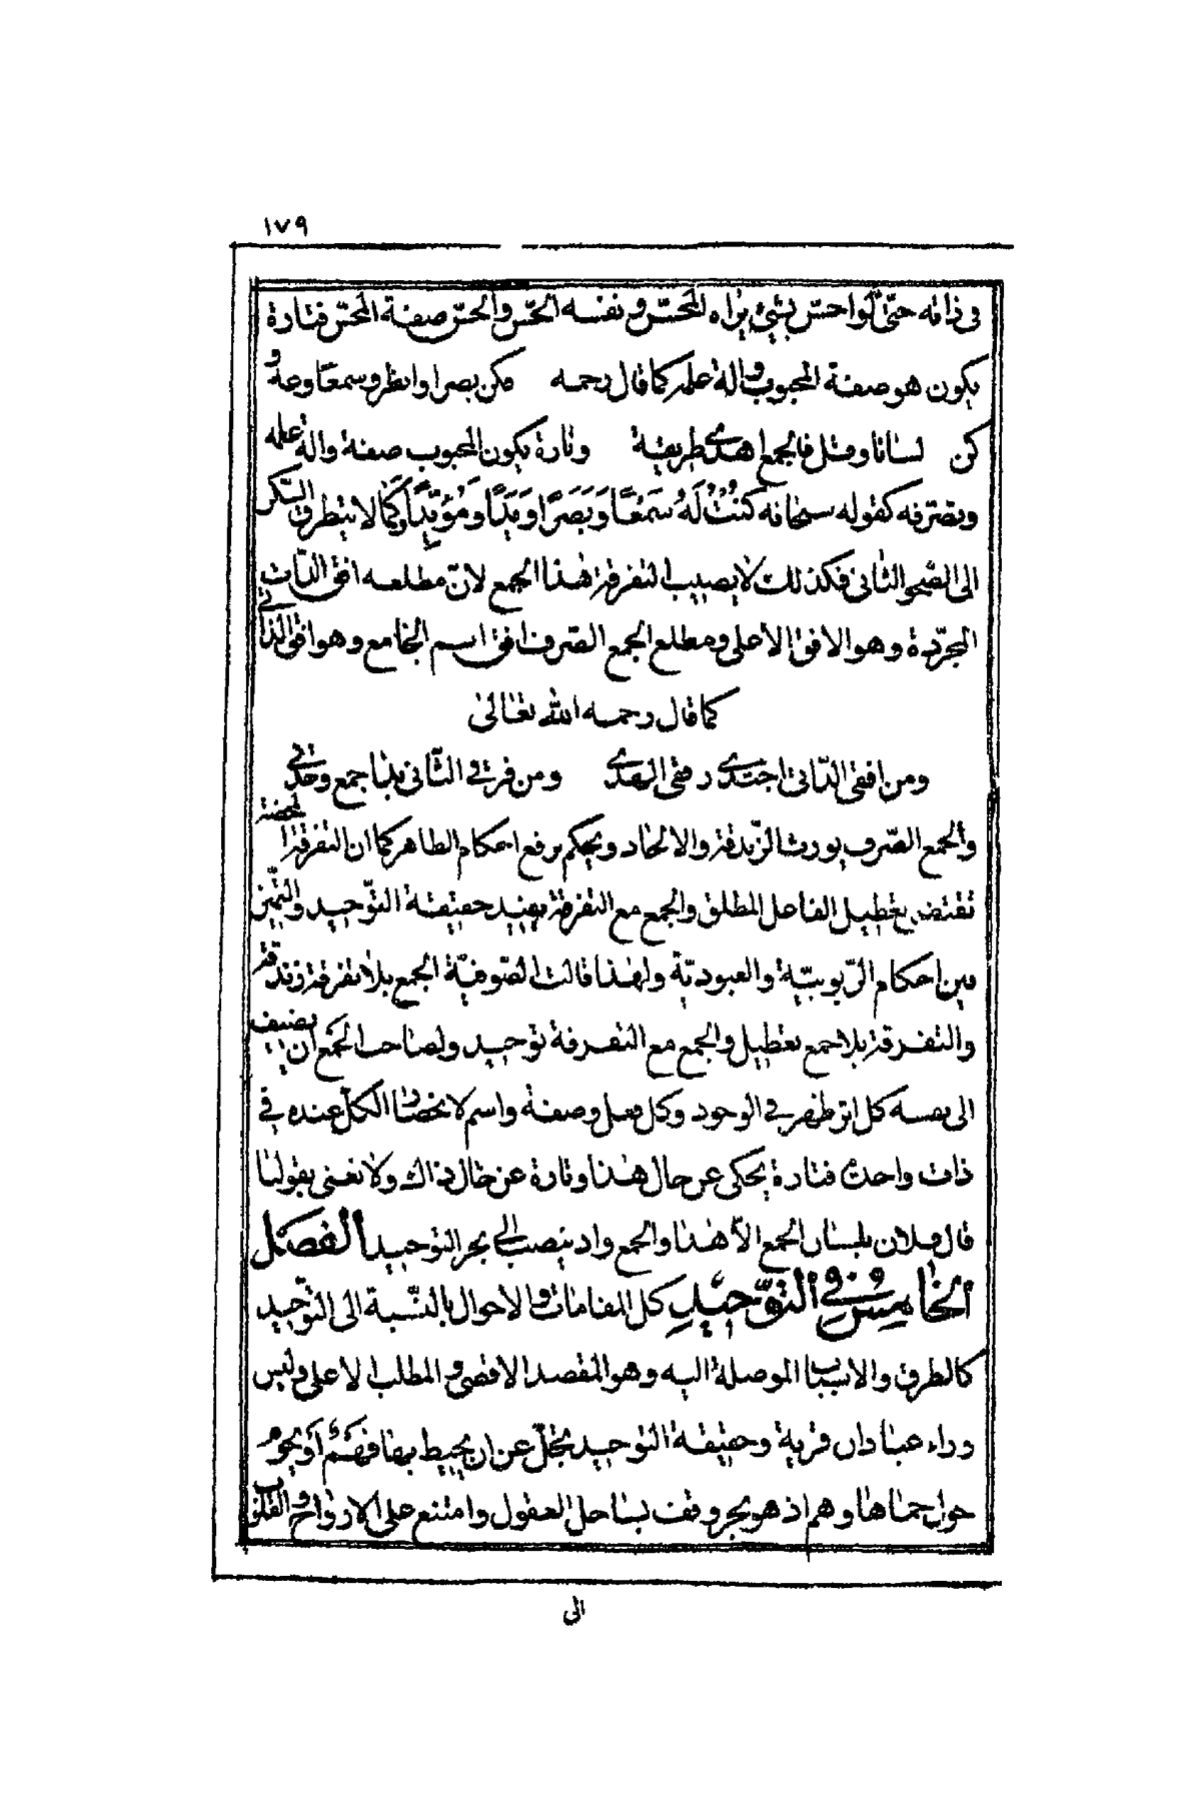 ١٧٩
فى ذاته حتّى لو احسّ بشئ يراه المحسّ ونفسه الحسّ والحسّ صفة المحسّ فتارة
يكون هو صفة المحبوب والة علمه كما قال رحمه فكن بصرا وانظر وسمعا وعه و
كن لسانا وقل فالجمع اهدى طريقة وتارة يكون المحبوب صفة والة علمه
وتصرفه كقوله سبحانه كُنْتُ لَهُ سَمْعًا وَبَصَرًا وَيَدًا وَمُؤَيِّدًا وكما لا يتطرق السكر
الى الصّحو الثانى فكذلك لا يصيب التفرقة هذا الجمع لانّ مطلعه افق الذّات
المجرّدة وهو الافق الاعلى ومطلع الجمع الصّرف افق اسم الجامع وهو افق الدّانى
كما قال رحمه الله تعالى
ومن افقى الدّانى اجتدى رفقى الهدى ومن فرقى الثّانى بدا جمع وحدتى
والجمع الصّرف يورث الزّندقة والالحاد ويحكم برفع احكام الظاهر كما ان التفرقة المحضة
تقتضى تعطيل الفاعل المطلق والجمع مع التفرقة يفيد حقيقة التّوحيد والتّميّز
بين احكام الرّبوبيّة والعبوديّة ولهذا قالت الصّوفيّة الجمع بلا تفرقة زندقة
والتفرقة بلا جمع تعطيل والجمع مع التفرقة توحيد ولصاحب الجمع ان يضيف
الى نفسه كل اثر ظهر فى الوجود وكل فعل وصفة واسم لانحصار الكلّ عنده فى
ذات واحدة فتارة يحكى عن حال هذا وتارة عن حال ذاك ولا نعنى بقولنا
قال فلان بلسان الجمع الّا هذا والجمع واد ينصبّ الى بحر التوحيد الفصل
الخامس فى التوّحيد كل المقامات والاحوال بالنّسبة الى التوّحيد
كالطرق والاسباب الموصلة اليه وهو المقصد الاقصى والمطلب الاعلى وليس
وراء عبادان قرية وحقيقة التوحيد تجلّ عن ان يحيط بها فهم او يحوم
حول حماها وهم اذ هو بحر وقف بساحله العقول وامتنع على الارواح والقلوب
الى